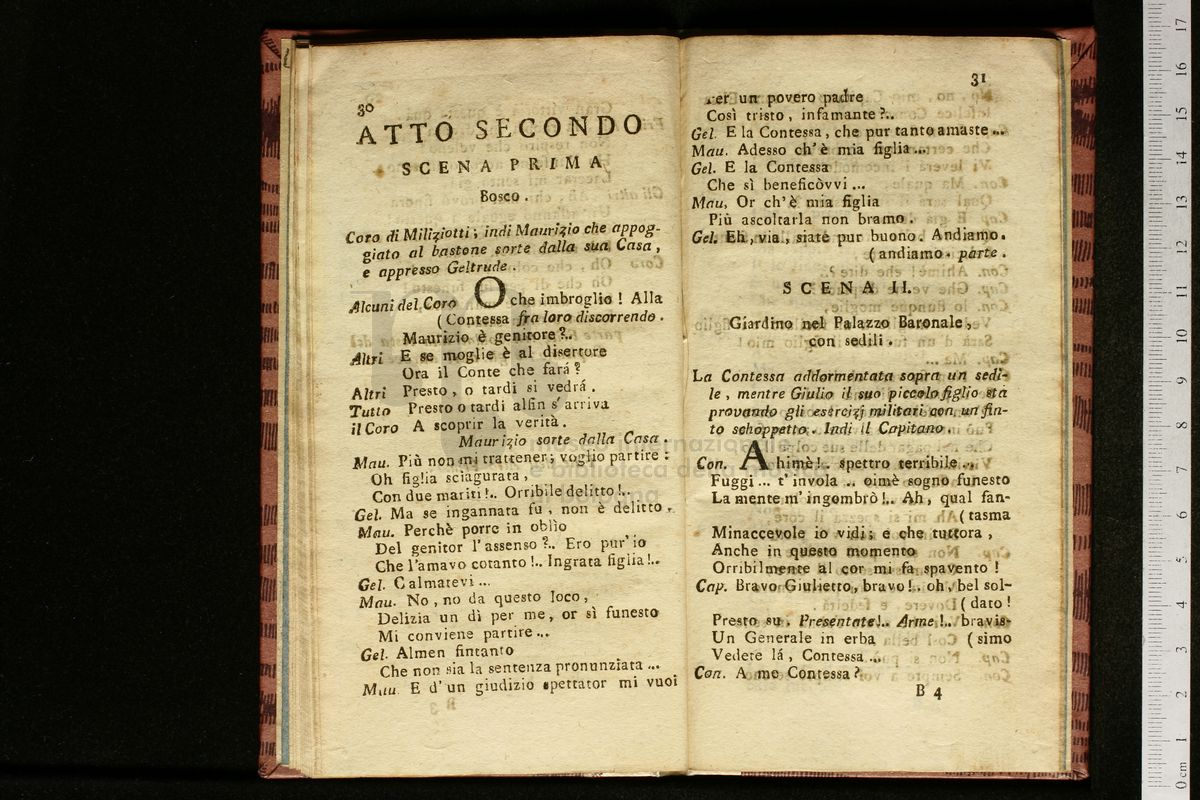 30
ATTO SECONDO
SCENA PRIMA
Bosco.
Coro di Miliziotti; indi Maurizio che appog-
giato al bastone sorte dalla sua Casa,
e appresso Geltrude.
Alcuni del Coro O che imbroglio! Alla
(Contessa fra loro discorrendo.
Maurizio è genitore?..
Altri E se moglie è al disertore
Ora il Conte che fará?
Altri Presto, o tardi si vedrá.
Tutto Presto o tardi alfin s'arriva
il Coro A scoprir la verità.
Maurizio sorte dalla Casa.
Mau. Più non mi trattener; voglio partire:
Oh figlia sciagurata,
Con due mariti!.. Orribile delitto!..
Gel. Ma se ingannata fu, non è delitto.
Mau. Perchè porre in oblìo
Del genitor l'assenso?.. Ero pur'io
Che l'amavo cotanto!.. Ingrata figlia!..
Gel. Calmatevi...
Mau. No, no da questo loco,
Delizia un dì per me, or sì funesto
Mi conviene partire...
Gel. Almen fintanto
Che non sia la sentenza pronunziata...
Mau. E d'un giudizio spettator mi vuoi
31
Per un povero padre
Così tristo, infamante?..
Gel. E la Contessa, che pur tanto amaste...
Mau. Adesso ch'è mia figlia...
Gel. E la Contessa
Che sì beneficòvvi...
Mau, Or ch'è mia figlia
Più ascoltarla non bramo.
Gel. Eh, via, siate pur buono. Andiamo.
(andiamo. parte.
SCENA II.
Giardino nel Palazzo Baronale,
con sedili.
La Contessa addormentata sopra un sedi-
le, mentre Giulio il suo piccolo figlio sta
provando gli esercizj militari con un fin-
to schoppetto. Indi il Capitano.
Con. Ahimè!.. spettro terribile...
Fuggi... t'invola.. oimè sogno funesto
La mente m'ingombrò!.. Ah, qual fan-
(tasma
Minaccevole io vidi; e che tuttora,
Anche in questo momento
Orribilmente al cor mi fa spavento!
Cap. Bravo Giulietto, bravo!.. oh, bel sol-
(dato!
Presto su. Presentate!.. Arme!.. bravis-
Un Generale in erba (simo
Vedete lá, Contessa...
Con. A me Contessa?
B 4
0 cm 1 2 3 4 5 6 7 8 9 10 11 12 13 14 15 16 17